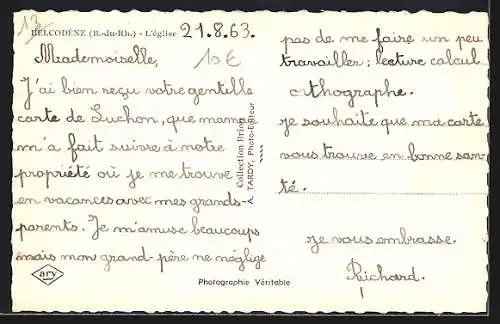 13
BELCODÈNE (B.-du-Rh.) - L'église
21.8.63.
10 €
Mademoiselle,
J'ai bien reçu votre gentille
carte de Luchon, que maman
m'a fait suivre à notre
propriété où je me trouve
en vacances avec mes grands-
parents. Je m'amuse beaucoups
mais mon grand-père ne néglige
pas de me faire un peu
travailler : lecture calcul
orthographe.
je souhaite que ma carte
vous trouve en bonne san-
té.
je vous embrasse.
Richard.
Collection Brion
A. TARDY, Photo-Editeur
ary
Photographie Véritable